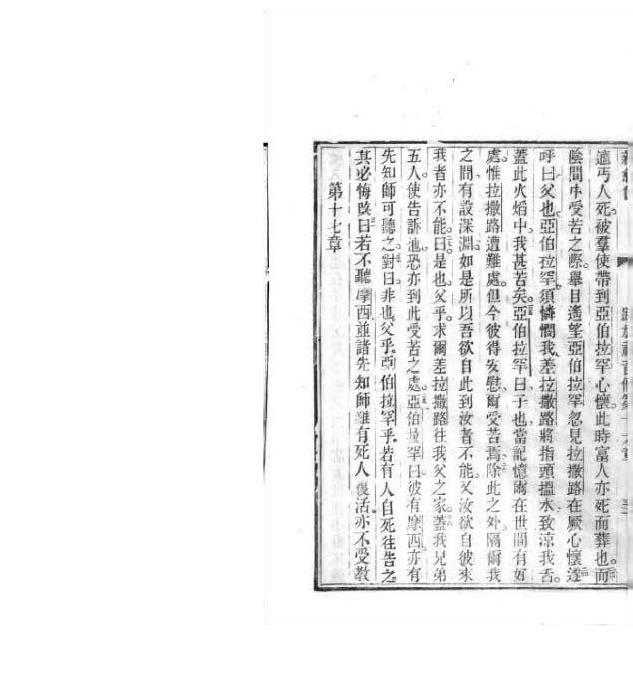 適丐人死被羣使帶到亞伯拉罕心懷此時富人亦死而葬也而
陰間中受苦之際舉目遙望亞伯拉罕忽見拉撒路在厥心懷遂
呼曰父也亞伯拉罕須憐憫我差拉撒路將指頭搵水致凉我舌
蓋此火焰中我甚苦矣亞伯拉罕曰子也當記憶爾在世間有好
處惟拉撒路遭難處但今彼得安慰爾受苦焉除此之外隔爾我
之間有設深淵如是所以吾欲自此到汝者不能又汝欲自彼來
我者亦不能曰是也父乎求爾差拉撒路往我父之家蓋我兄弟
五人使告訴他恐亦到此受苦之處亞伯拉罕曰彼有摩西亦有
先知師可聽之對曰非也父乎亞伯拉罕乎若有人自死往告之
其必悔改曰若不聽摩西並諸先知師雖有死人復活亦不受教
第十七章